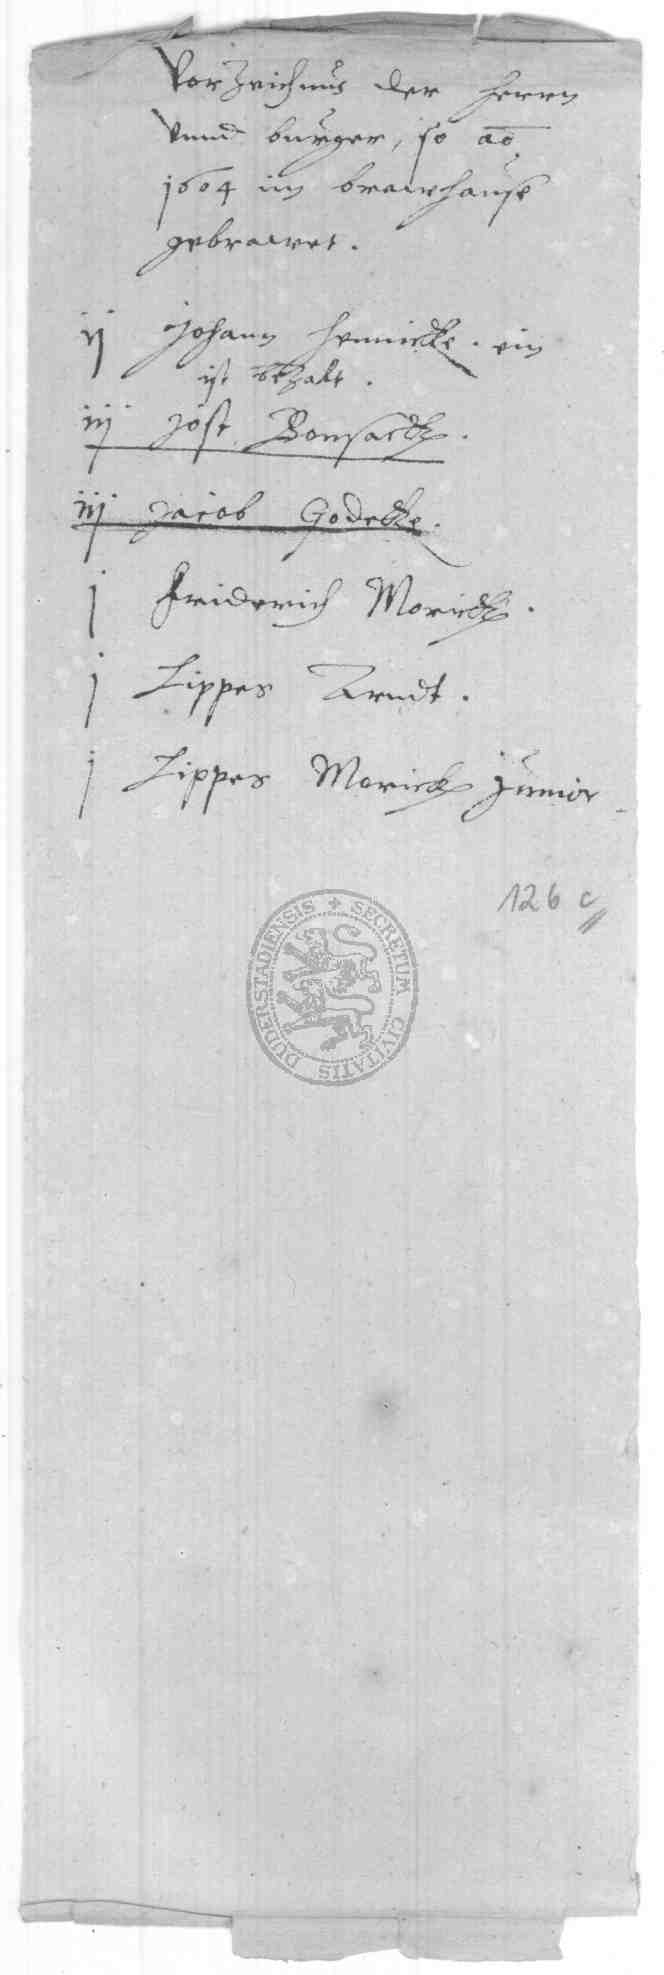 Vorzeichnus der Herrn
vnnd burger, so ao
1604 im brawhause
gebrawet.
ij Johann Hennicke. ein
ist bezalt.
iij Jost Bonsack.
iij Jacob Godecke.
j Friderich Morick.
j Lippes Arndt.
j Lippes Morick Junior
126 c
SECRETUM CIVITATIS DUDERSTADIENSIS